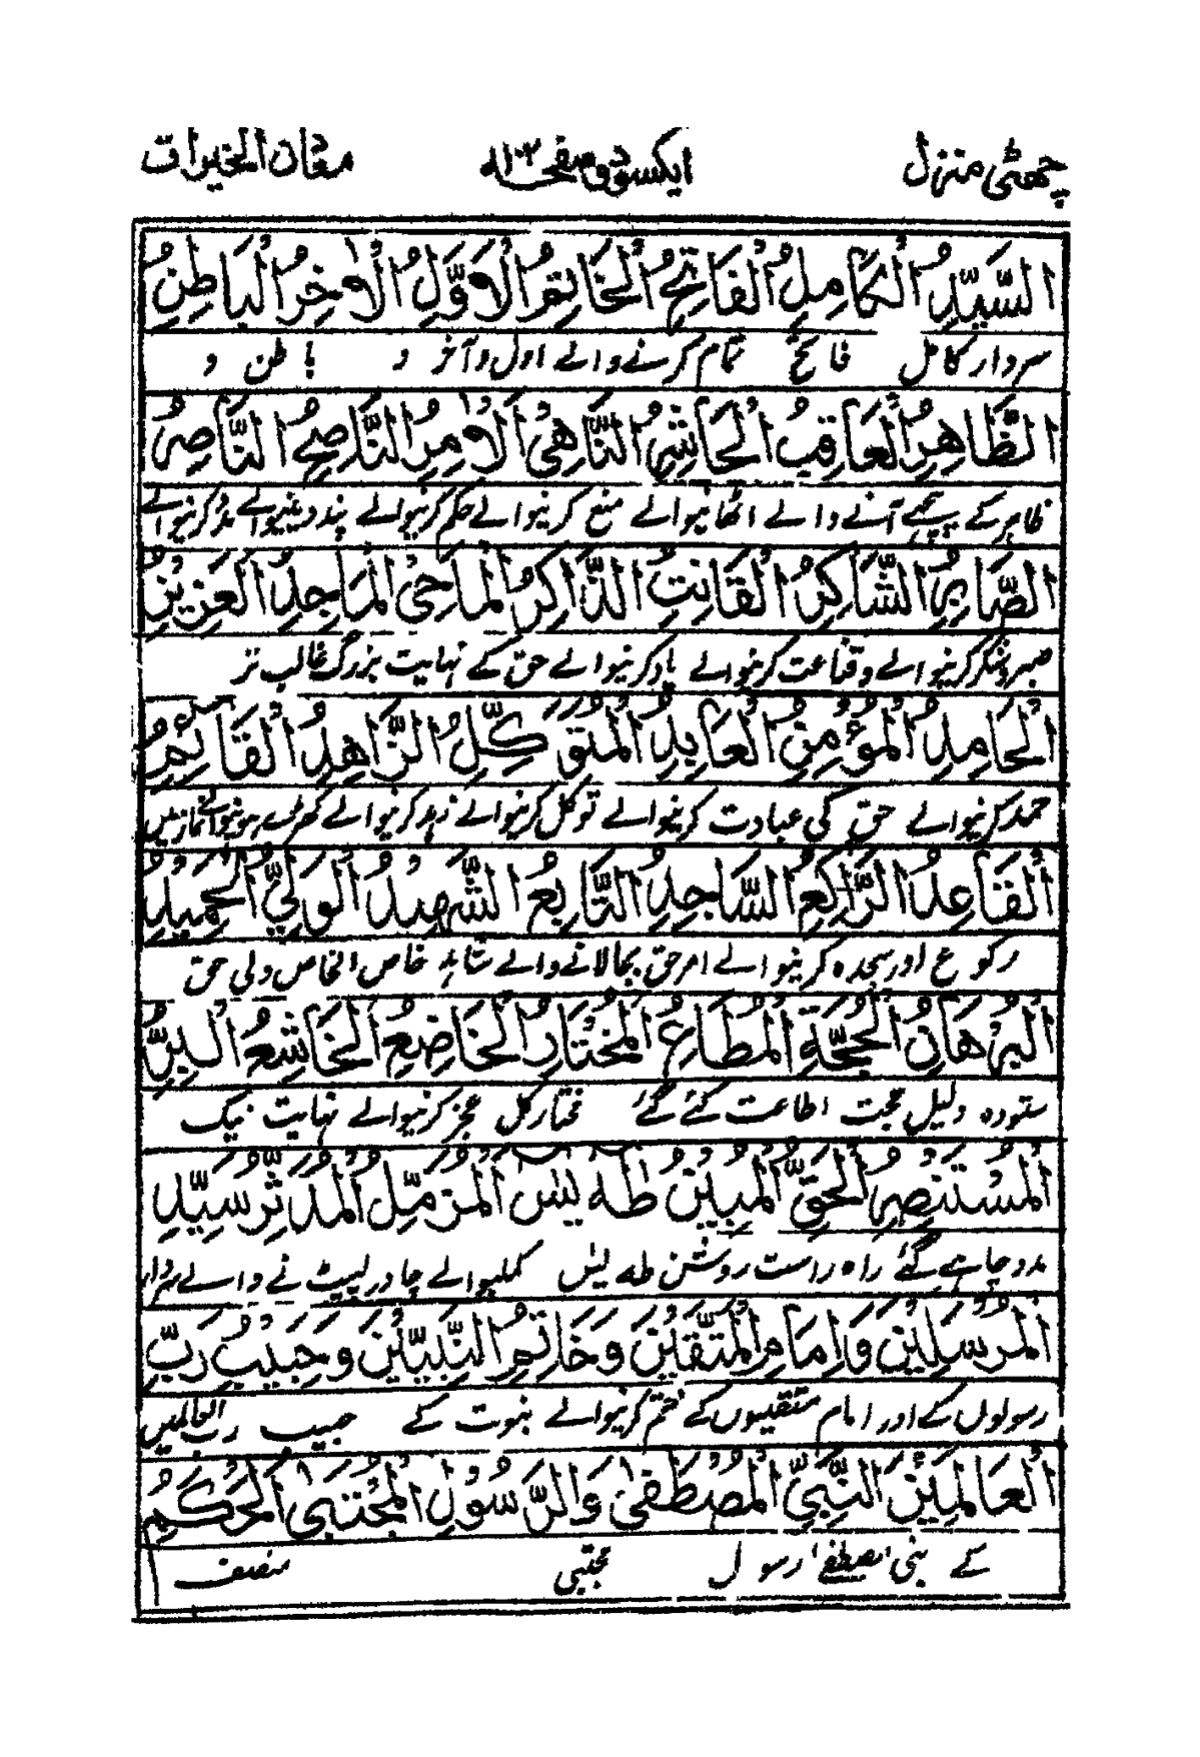 چھٹی منزل ایکسو دو صفحہ ۱۰۲ معدن الخیرات
السَّيِّدِ الْكَامِلِ الْفَاتِحِ الْخَاتِمِ الْأَوَّلِ الْآخِرِ الْبَاطِنِ
سردار کامل فاتح تمام کرنے والے اول و آخر و باطن و
الظَّاهِرِ الْعَاقِبِ الْحَاشِرِ النَّاهِى الْآمِرِ النَّاصِحِ النَّاصِرِ
ظاہر کے پیچھے آنے والے اٹھانیوالے منع کرنیوالے حکم کرنیوالے پند دینیوالے مدد کرنیوالے
الصَّابِرِ الشَّاكِرِ الْقَانِتِ الذَّاكِرِ الْمَاحِى الْمَاجِدِ الْعَزِيْزِ
صبر و شکر کرنیوالے و قناعت کرنیوالے یاد کرنیوالے حق کے نہایت بزرگ غالب تر
الْحَامِدِ الْمُؤْمِنِ الْعَابِدِ الْمُتَوَكِّلِ الزَّاهِدِ الْقَائِمِ
حمد کرنیوالے حق کی عبادت کرنیوالے توکل کرنیوالے زہد کرنیوالے کھڑے ہونیوالے نماز میں
الْقَاعِدِ الرَّاكِعِ السَّاجِدِ التَّابِعِ الشَّهِيْدِ الْوَلِيِّ الْحَمِيْدِ
رکوع اور سجدہ کرنیوالے امر حق بجا لانے والے شاہد خاص الخاص ولی حق
الْبُرْهَانِ الْحُجَّةِ الْمُطَاعِ الْمُخْتَارِ الْخَاضِعِ الْخَاشِعِ الْبِرِّ
ستودہ دلیل حجت اطاعت کئے گئے مختار کل عجز کرنیوالے نہایت نیک
الْمُسْتَنْصِرِ الْحَقِّ الْمُبِيْنِ طٰهٰ يٰسٓ الْمُزَّمِّلِ الْمُدَّثِّرِ سَيِّدِ
مدد چاہے گئے راہ راست روشن طہ یٰس کملیوالے چادر لپیٹنے والے سردار
الْمُرْسَلِيْنَ وَاِمَامِ الْمُتَّقِيْنَ وَخَاتِمِ النَّبِيِّيْنَ وَحَبِيْبِ رَبِّ
رسولوں کے اور امام متقیوں کے ختم کرنیوالے نبوت کے حبیب رب العالمین
الْعَالَمِيْنَ النَّبِيِّ الْمُصْطَفٰى وَالرَّسُوْلِ الْمُجْتَبٰى الْحَكَمِ
کے نبی مصطفے رسول مجتبی منصف